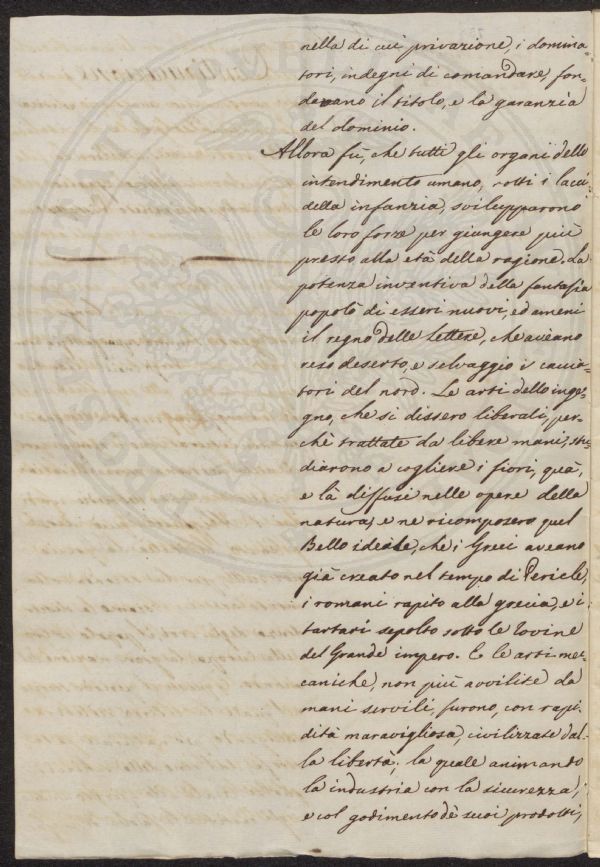 nella di cui privazione, i domina-
tori, indegni di comandare, fon-
davano il titolo, e la garanzia
del dominio.
Allora fù, che tutti gli organi dello
intendimento umano, rotti i lacci
della infanzia, svilupparono
le loro forze per giungere più
presto alla età della ragione. La
potenza inventiva della fantasia
popolò di esseri nuovi, ed ameni
il regno delle Lettere, che aveano
reso deserto, e selvaggio i caccia-
tori del nord. Le arti dello inge-
gno, che si dissero liberali, per-
chè trattate da libere mani, stu-
diarono a cogliere i fiori, quà,
e là diffusi nelle opere della
natura, e ne ricomposero quel
Bello ideale, che i Greci aveano
già creato nel tempo di Pericle,
i romani rapito alla grecia, e i
tartari sepolto sotto le rovine
del Grande impero. E le arti mec-
caniche, non più avvilite da
mani servili, furono, con rapi-
dità maravigliosa, civilizzate dal-
la libertà; la quale animando
la industria con la sicurezza,
e col godimento dè suoi prodotti,